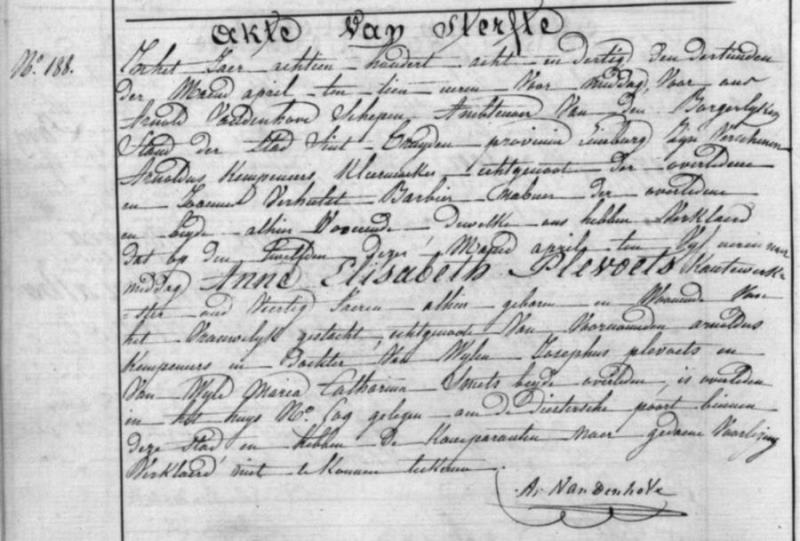 Akte Van Sterfte
No. 188.
In het Jaer achtien hondert acht en dertig den dertienden
der Maend april ten tien uren Voor middag, Voor ons
Arnold Vandenhove Schepen Ambtenaer Van den Borgerlyken
Stand der Stad Sint Truyden provincie Limburg Zyn Verschenen
Arnoldus Kempeneers Kleermaker, echtgenoot der overledene
en Verhulst Barbier Nabuer der overledene
en beyde alhier Woonende dewelke ons hebben Verklaerd
dat op den twelfden dezer Maend april ten Vyf uren naer
middag Anne Elisabeth Plevoets Kantewerk-
-ster oud Veertig Jaeren alhier geboren en Woonende Van
het Vrouwelyk geslacht, echtgenoote Van Voornoemden arnoldus
Kempeneers en Dochter Van Wylen Josephus plevoets en
Van Wyle Maria Catharina Smets beyde overleden, is overleden
in het huys No. gelegen aen de Diestersche poort binnen
deze Stad en hebben De Komparanten naer gedaene Voorlezing
Verklaerd niet te konnen teekenen.
Ar. Vandenhove